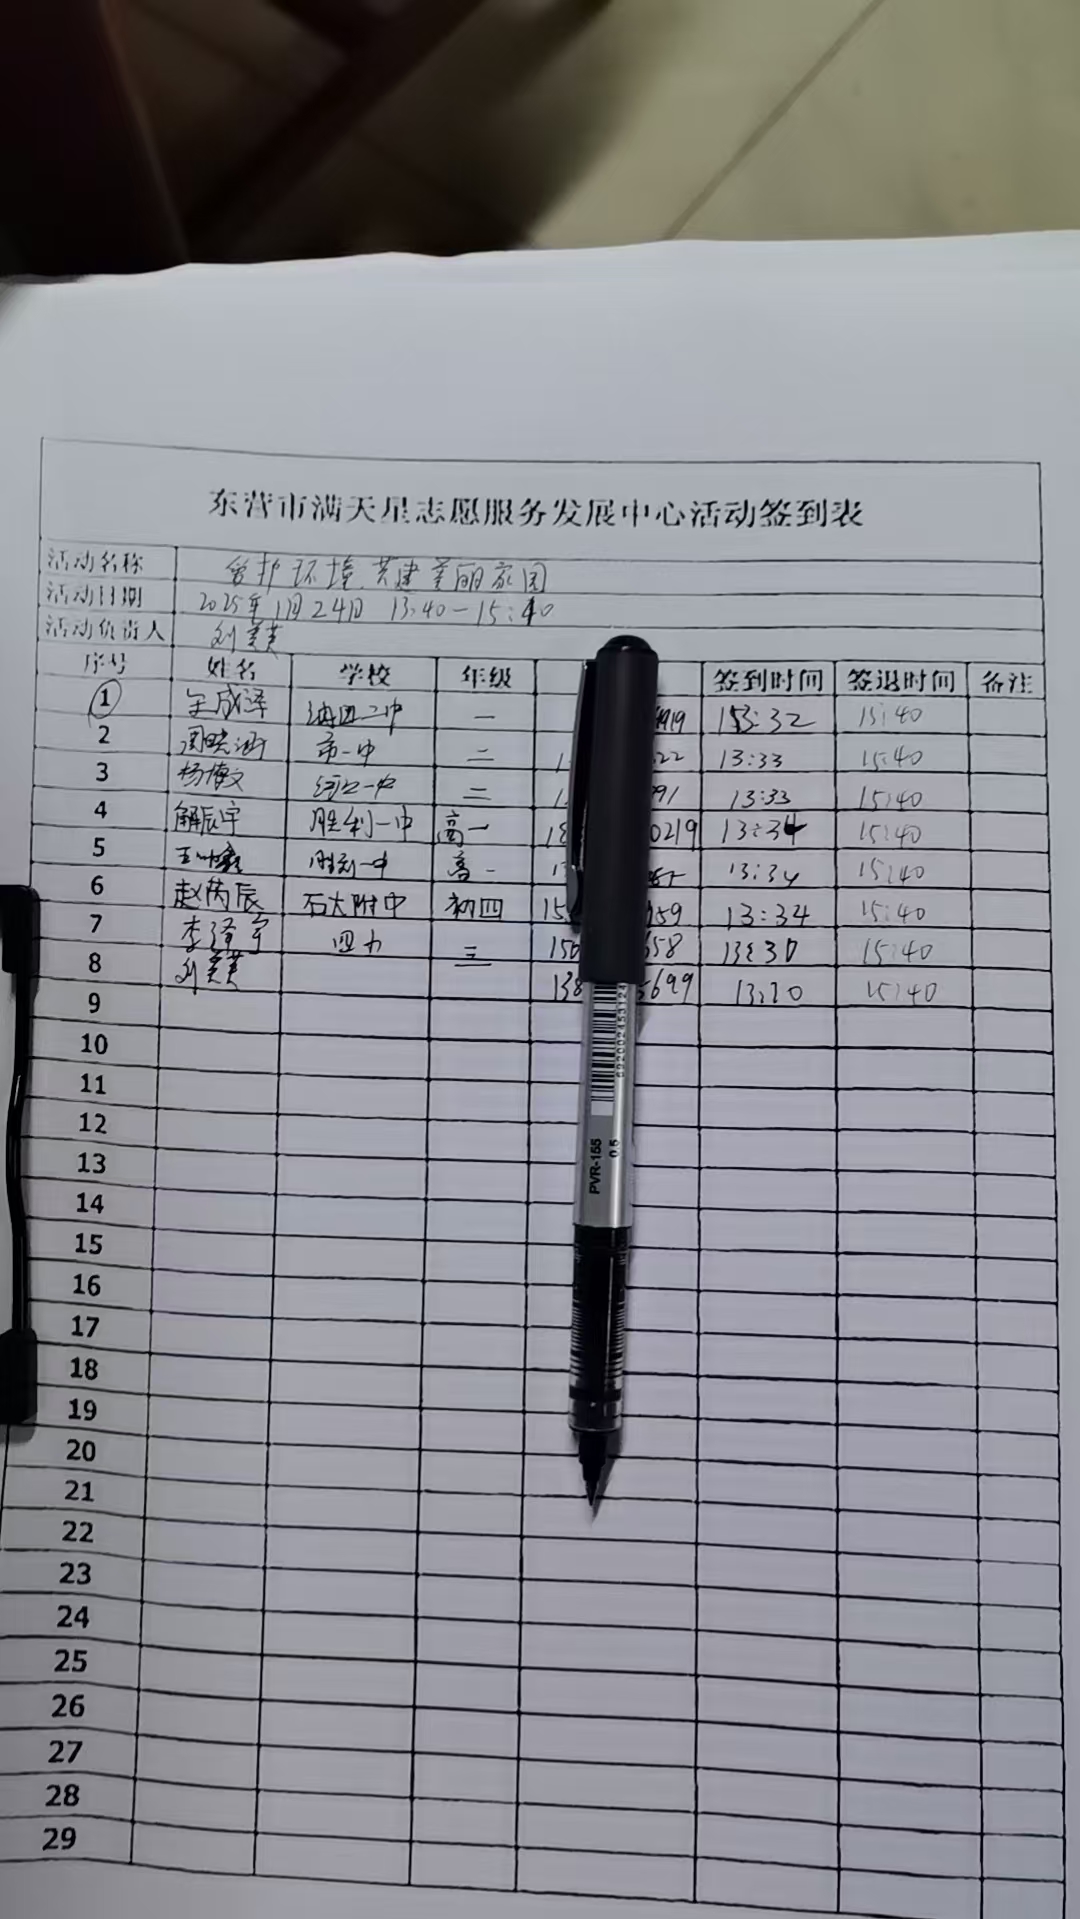 东营市满天星志愿服务发展中心活动签到表
活动名称 爱护环境 共建美丽家园
活动日期 2025年1月24日 13:40-15:40
活动负责人 刘美美
序号 姓名 学校 年级 签到时间 签退时间 备注
1 成泽 二中 一 919 13:32 15:40
2 周晓涵 市一中 二 1 22 13:33 15:40
3 杨博文 河口一中 二 1 91 13:33 15:40
4 解辰宇 胜利一中 高一 18 0219 13:34 15:40
5 王 胜利一中 高一 1 13:34 15:40
6 赵芮辰 石大附中 初四 15 159 13:34 15:40
7 李泽宇 四 三 150 658 13:30 15:40
8 刘美美 138 5699 13:20 15:40
9
10
11
12
13
14
15
16
17
18
19
20
21
22
23
24
25
26
27
28
29
PVR-155 0.5